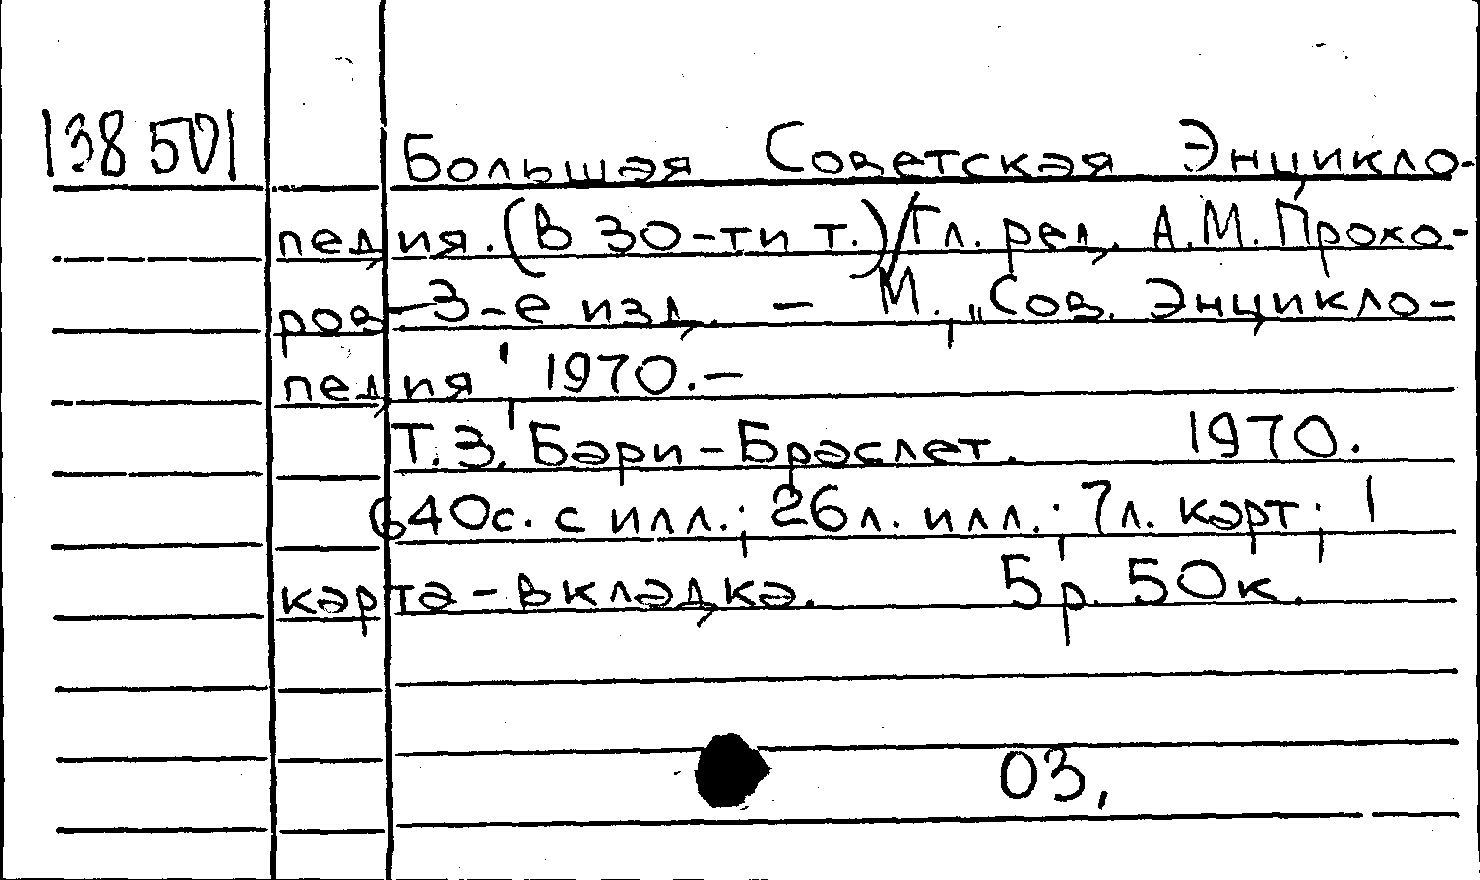 138501 Большая Советская Энцикло-
педия. (В 30-ти т.)/Гл. ред. А.М. Прохо-
ров - 3-е изд. - М., „Сов. Энцикло-
педия", 1970. -
Т.3. Бари-Браслет. 1970.
640с. с илл.; 26л. илл.; 7л. карт; 1
карта-вкладка. 5р. 50к.
03,